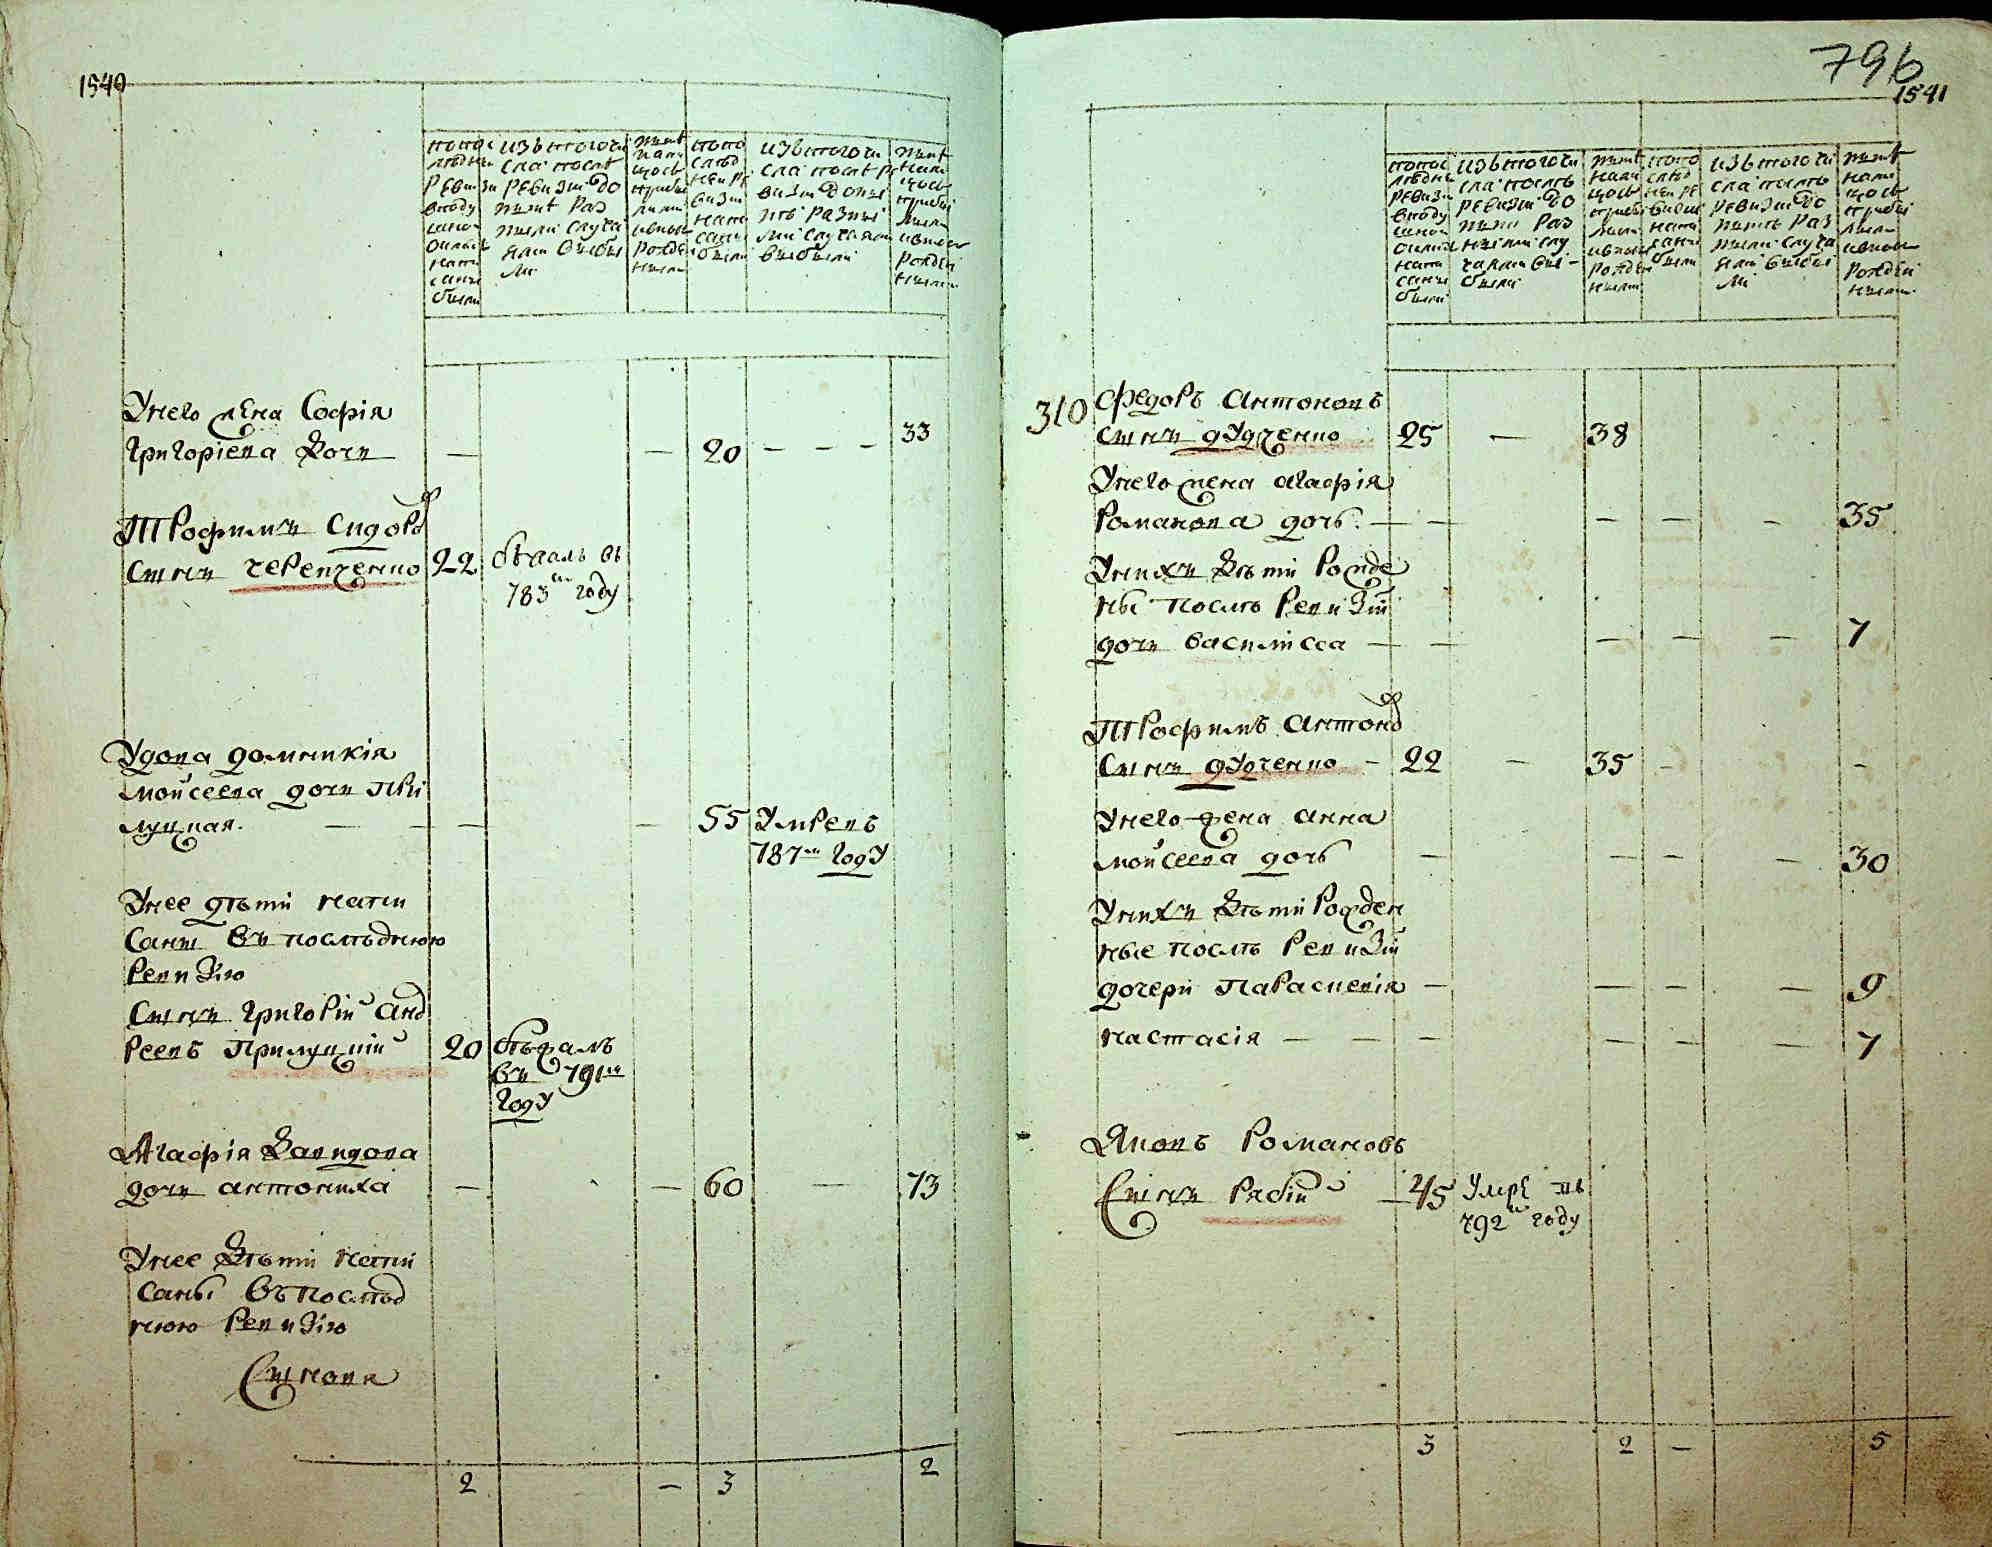 1540
попо
слѣднеи
Реви зи
вподу
шной
окладъ
напи
саны
были
изъ того чи
сла послѣ
Ревизии до
нынѣ Раз
ными случа
ями выбы
ли
нынѣ
нали
цо съ
прибы
лыми
и вновь
рожде
ными
попо
слѣд
неи ре
визии
напи
саны
были
изъ того чи
сла послѣ ре
визии до ны
нѣ разны
ми случаями
выбыли
нынѣ
нали
цо съ
прибы
лыми
и вновь
рожден
ными
Унего жена Софія
Григоріева дочъ — — 20 — — — 33
Трофимъ Сидоровъ
Сынъ черепченко 22 бѣжалъ въ
783м году
Удова домникія
мойсеева дочъ При
луцкая. — — — — 55 Умре въ
787м году
Унее дѣти напи
саны въ послѣднюю
Ревизію
Сынъ Григорій Анд
реевъ Прилуцкій 20 бѣжалъ
въ 791м
году
Агафія Давидова
дочъ антониха — — 60 — 73
Унее дѣти напи
саны въ послѣд
нюю Ревизію
Сынова
2 — 3 2
796
1541
попос
лѣдней
ревизи
вподу
шной
окладъ
напи
саны
были
изъ того чи
сла послѣ
ревизии до
нынѣ раз
ными слу
чаями вы-
были
нынѣ
нали
цо съ
прибы
лыми
и вновь
рожде
ными
попо
слѣд
неи ре
визии
напи
саны
были
изъ того чи
сла послѣ
ревизии до
нынѣ раз
ными случа
ями выбы
ли
нынѣ
нали
цо съ
прибы
лыми
и вновь
рожден
ными
310 Федоръ Антоновъ
Сынъ дудченко 25 — 38
Унего жена агафія
Романова дочь. — — — — — 35
Унихъ дѣти Рожде
ны послѣ Ревизіи
дочъ василисса — — — — — 7
Трофимъ Антоновъ
Сынъ дудченко — 22 — 35 — —
Унего жена анна
мойсеева дочь — — — — 30
Унихъ дѣти Рожден
ные послѣ Ревизіи
дочери Параскевія — — — — 9
настасія — — — — — — 7
Яковъ Романовъ
Сынъ Рябій — 45 умре въ
792м году
3 2 — 5